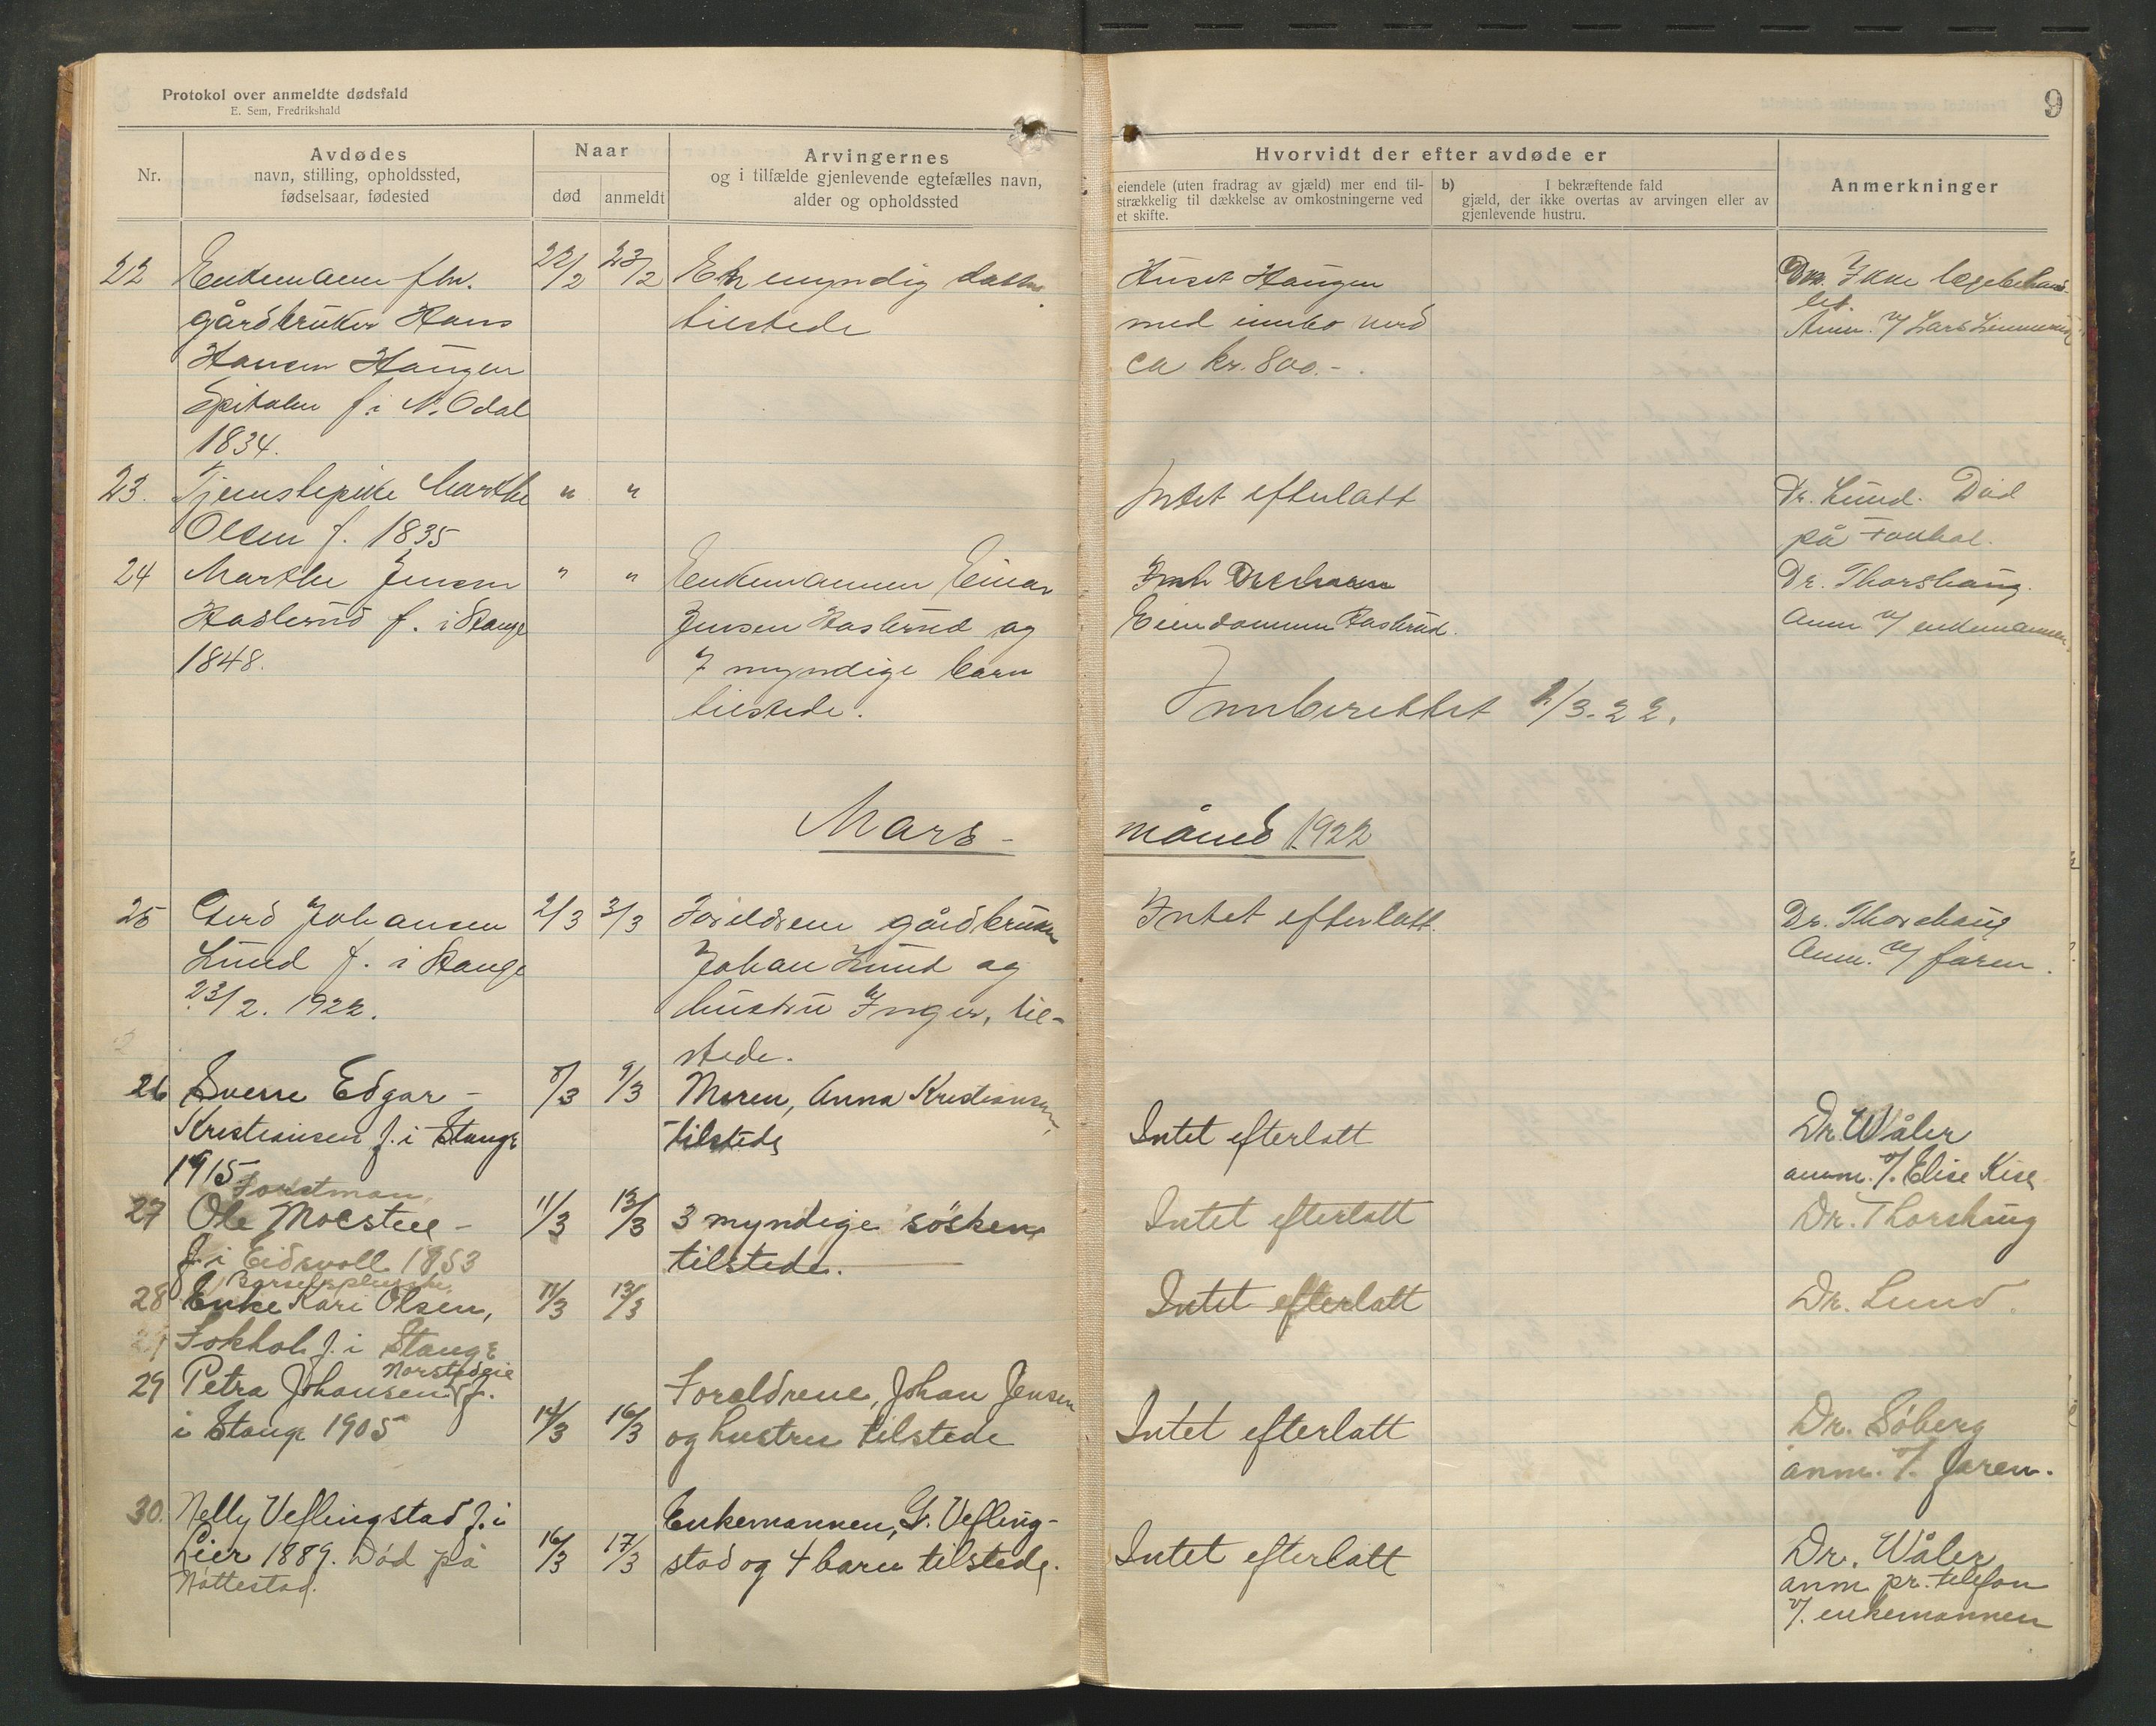 Protokol over anmeldte dødsfald
E. Sem, Fredrikshald
9
Nr.
Avdødes
navn, stilling, opholdssted,
fødselsaar, fødested
Naar
død
anmeldt
Arvingernes
og i tilfælde gjenlevende egtefælles navn,
alder og opholdssted
Hvorvidt der efter avdøde er
eiendele (uten fradrag av gjæld) mer end til-
strækkelig til dækkelse av omkostningerne ved
et skifte.
b) I bekræftende fald
gjæld, der ikke overtas av arvingen eller av
gjenlevende hustru.
Anmerkninger
22
Enkemann fhv.
gårdbruker Hans
Hansen Haugen
Spitalen f. i N. Odal
1834.
22/2
23/2
En myndig datter
tilstede
Huset Haugen
med innbo verd
ca kr. 800.-
Ikke lægebehand-
let.
Anm. v/ Lars
23.
Tjenestepike Marthe
Olsen f. 1835
"
"
Intet efterlatt
Dr. Lund. Død
på Fokhol.
24
Marthe Jensen
Haslerud f. i Stange
1848.
"
"
Enkemannen Einar
Jensen Haslerud og
7 myndige barn
tilstede.
Eiendommen Haslerud.
Dr. Thorshaug.
Anm v/ enkemannen
Innberettet 1/3-22.
Mars -
måned 1922
25
Gerd Johansen
Lund f. i Stange
23/2. 1922.
2/3
3/3
Foreldrene gårdbruker
Johan Lund og
hustru Inger, til-
stede.
Intet efterlatt.
Dr. Thorshaug
Anm. v/ faren.
26
Sverre Edgar -
Kristiansen f. i Stange
1915
8/3
9/3
Moren, Anna Kristiansen,
tilstede
Intet efterlatt
Dr. Wåler
anm. v/. Elise Kise
27
Forstman,
Ole Moestue -
f. i Eidsvoll 1853
11/3
13/3
3 myndige søsken
tilstede.
Intet efterlatt
Dr. Thorshaug
28
Barselspleierske
Enke Kari Olsen,
Fokhol f. i Stange
11/3
13/3
Intet efterlatt
Dr. Lund.
29
Petra Johansen f.
i Stange 1905
14/3
16/3
Foreldrene, Johan Jensen
og hustru tilstede
Intet efterlatt
Dr. Søberg
anm. v/. faren.
30.
Nelly Veflingstad f. i
Lier 1889. Død på
Nøttestad.
16/3
17/3
Enkemannen, G. Vefling-
stad og 4 barn tilstede.
Intet efterlatt
Dr. Wåler
anm. pr. telefon
v/. enkemannen